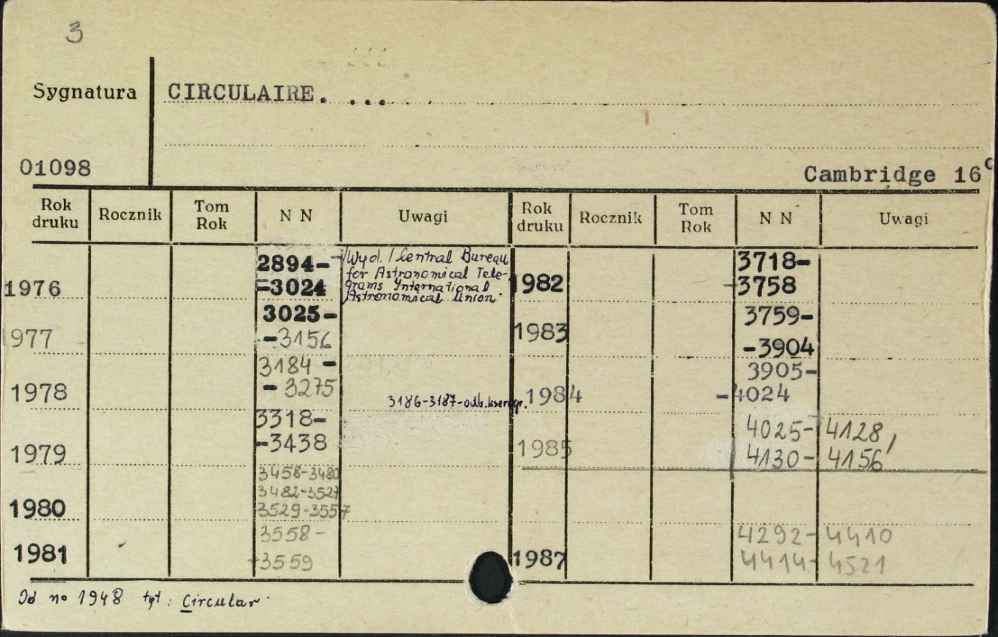 3
Sygnatura
CIRCULAIRE. ...
01098
Cambridge 16c
Rok druku Rocznik Tom Rok N N Uwagi Rok druku Rocznik Tom Rok N N Uwagi
1976 2894-
-3024
Wyd. / Central Bureau
for Astronomical Tele-
grams International
Astronomical Union.
977 3025-
-3156
1978 3184 -
- 3275
3186-3187-odb.kserogr.
1979 3318-
-3438
1980 3458-3480
3482-3527
3529-3557
1981 3558-
-3559
1982 3718-
-3758
1983 3759-
-3904
1984 3905-
-4024
1985 4025-4128,
4130-4156
1987 4292-4410
4414-4521
Od no 1948 tyt: Circular.